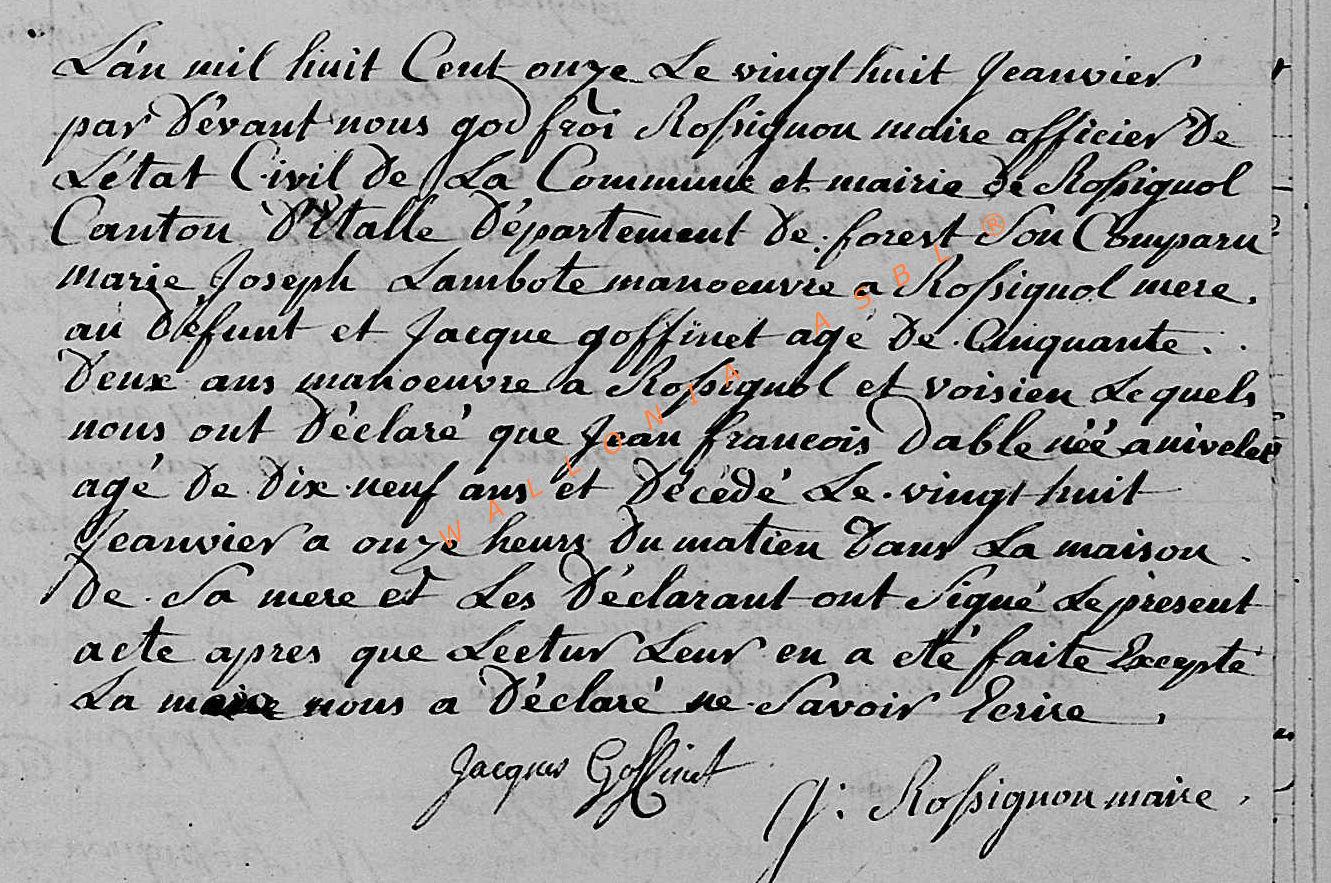 L'an mil huit Cent onze Le vingt huit Jeanvier
par Dévant nous godfroi Rossignon maire officier De
L'état Civil De La Commune et mairie de Rossignol
Canton D'Etalle Département De forest Son Comparu
marie Joseph Lambote manoeuvre a Rossignol mere
au Défunt et Jacque goffinet agé De Cinquante
Deux ans manoeuvre a Rossignol et voisien Lequels
nous ont Déclaré que Jean francois Dable néé anivelet
agé De Dix neuf ans et Décédé Le vingt huit
Jeanvier a onze heurs Du matien Dans La maison
De Sa mere et Les Déclarant ont Signé Le present
acte apres que Lectur Leur en a eté faite Excepté
La mere nous a Déclaré ne Savoir Ecrire
Jacques Goffinet
g: Rossignon maire
WALLONIA ASBL ®